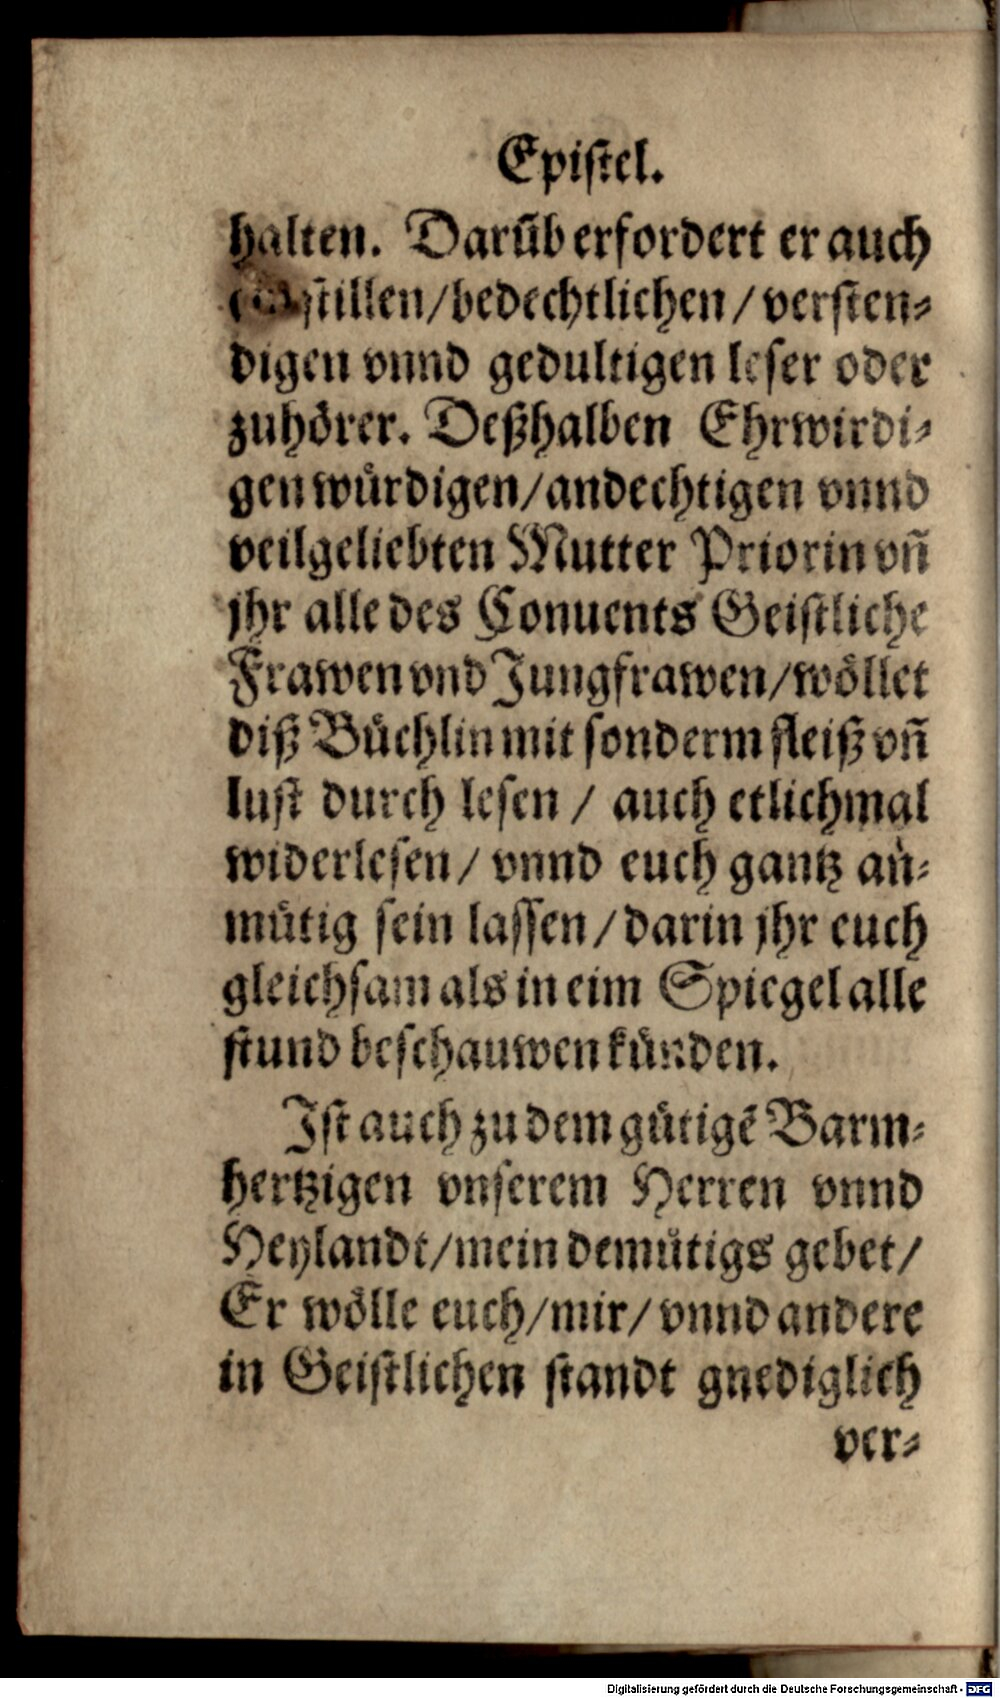 Epistel.
halten. Darũb erfordert er auch
stillen/bedechtlichen/versten⸗
digen vnnd gedultigen leser oder
zuhoͤrer. Deßhalben Ehrwirdi⸗
gen wuͤrdigen/andechtigen vnnd
veilgeliebten Mutter Priorin vñ
jhr alle des Conuents Geistliche
Frawen vnd Jungfrawen/woͤllet
diß Buͤchlin mit sonderm fleiß vñ
lust durch lesen / auch etlichmal
widerlesen/ vnnd euch gantz an⸗
muͤtig sein lassen/darin jhr euch
gleichsam als in eim Spiegel alle
stund beschauwen kuͤnden.
Jst auch zu dem guͤtigẽ Barm⸗
hertzigen vnserem Herren vnnd
Heylandt/mein demuͤtigs gebet/
Er woͤlle euch/mir/vnnd andere
in Geistlichen standt gnediglich
ver⸗
Digitalisierung gefördert durch die Deutsche Forschungsgemeinschaft - DFG